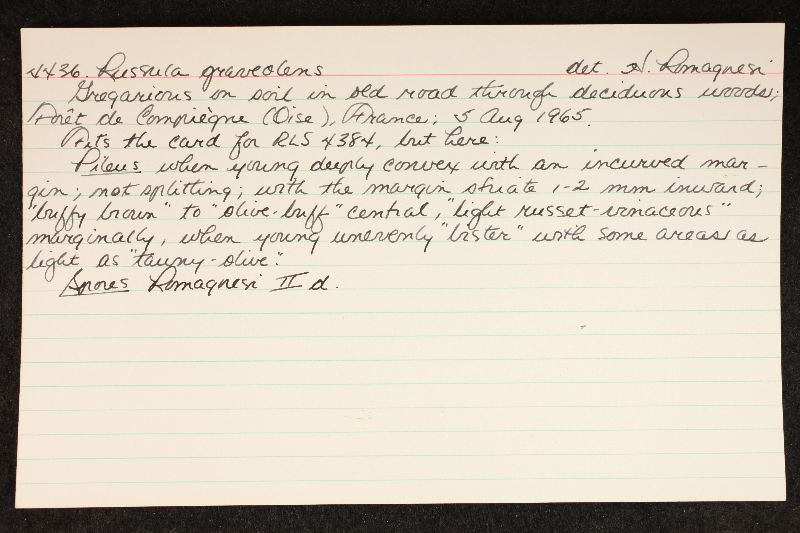 4436. Russula graveolens det. H. Romagnesi
Gregarious on soil in old road through deciduous woods;
Forêt de Compiègne (Oise), France; 5 Aug 1965.
Fits the card for RLS 4384, but here:
Pileus when young deeply convex with an incurved mar-
gin; not splitting; with the margin striate 1-2 mm inward;
"buffy brown" to "olive-buff" central, "light russet-vinaceous"
marginally, when young unevenly "bister" with some areas as
light as "tawny-olive".
Spores Romagnesi II d.